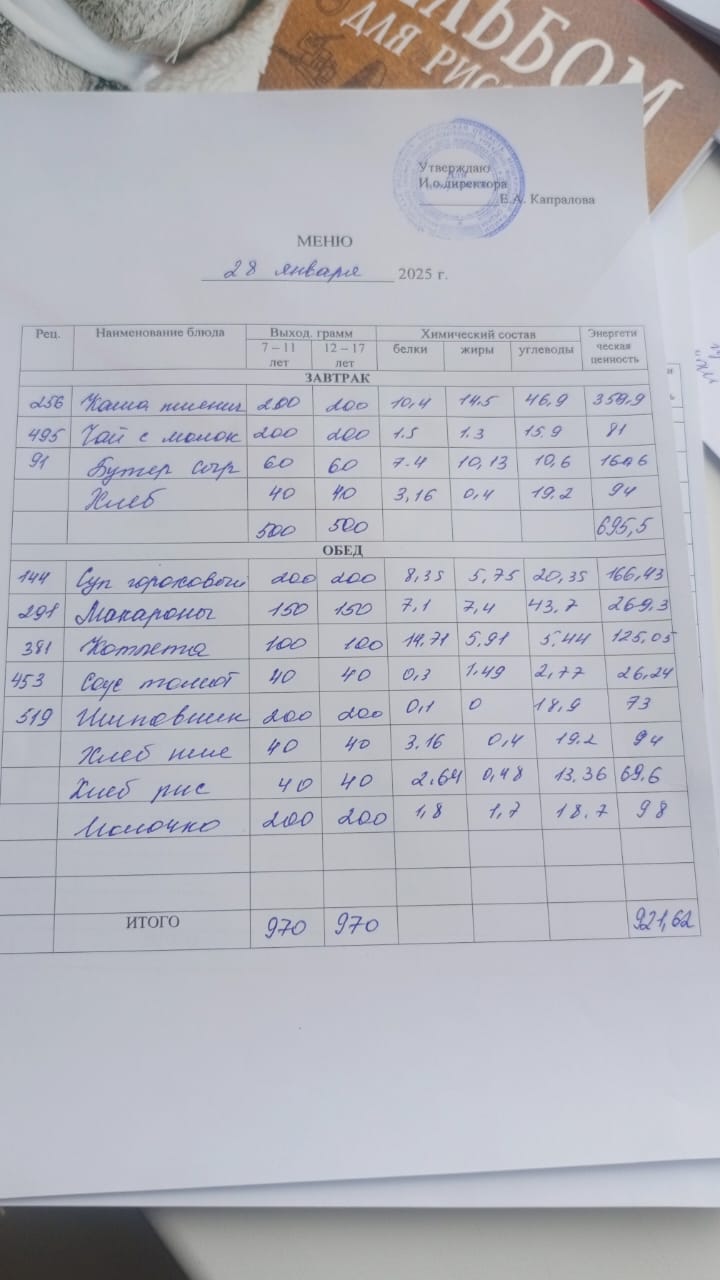 АЛЬБОМ
ДЛЯ РИС
Утверждаю
И.о.директора
Е.А. Капралова
МЕНЮ
28 января 2025 г.
Рец. Наименование блюда Выход. грамм Химический состав Энергети ческая ценность
7 – 11 лет 12 – 17 лет белки жиры углеводы
ЗАВТРАК
256 Каша пшенич 200 200 10,4 14.5 46,9 359,9
495 Чай с молок 200 200 1.5 1.3 15.9 81
91 Бутер сыр 60 60 7.4 10,13 10,6 160,6
Хлеб 40 40 3,16 0,4 19.2 94
500 500 695,5
ОБЕД
144 Суп гороховый 200 200 8,35 5,75 20,35 166,43
291 Макароны 150 150 7,1 7,4 43,7 269,3
381 Котлета 100 100 14,71 5,91 5,44 125,05
453 Соус томат 40 40 0,3 1.49 2,77 26,24
519 Шиповник 200 200 0,1 0 18,9 73
Хлеб пше 40 40 3.16 0,4 19.2 94
Хлеб рж 40 40 2.64 0,48 13,36 69,6
Молочко 200 200 1,8 1,7 18.7 98
ИТОГО 970 970 921,62